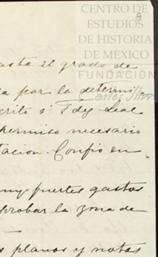 CENTRO DE
ESTUDIOS
DE HISTORIA
DE MEXICO
FUNDACIÓN
hasta el grado de
por la determi
crito á Fdez Leal
permiso necesario
tacion. Confío en
muy fuertes gastos
probar la zona de
s planos y notas